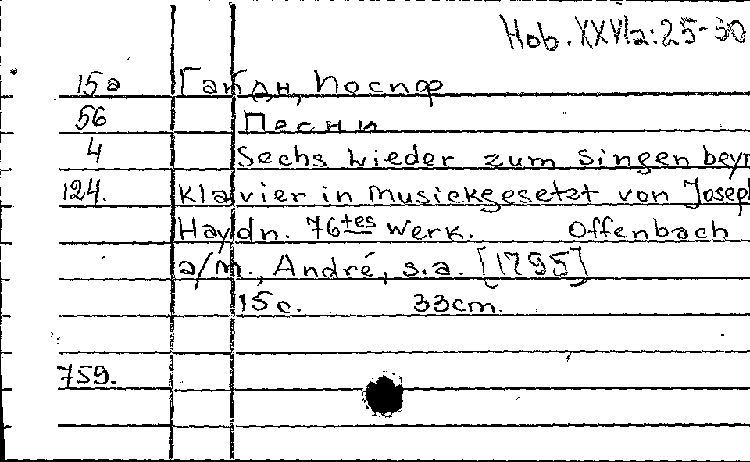 Hob. XXVIa:25-30
15a Гайдн, Иосиф
56 Песни
4 Sechs Lieder zum Singen beym
124. Klavier in Musickgesetzt von Joseph
Haydn. 76tes Werk. Offenbach
a/m., André, s.a. [1795]
15 c. 33cm.
759.